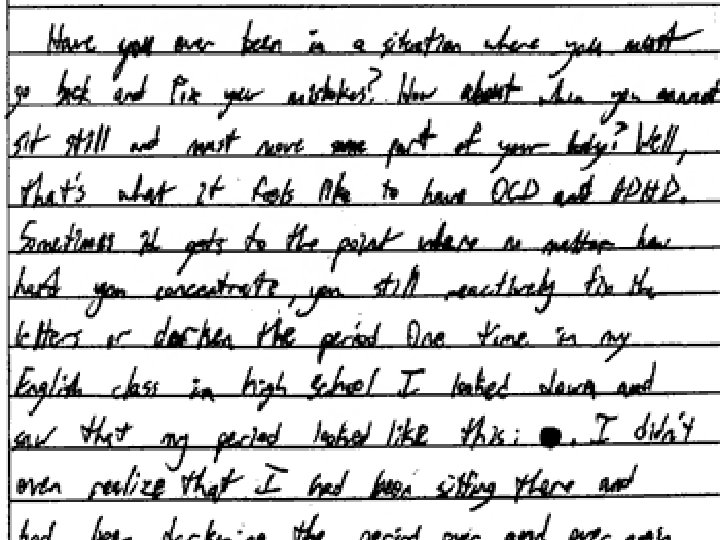 Have you ever been in a situation where you must
go back and fix your mistakes? How about when you cannot
sit still and must move some part of your body? Well,
that's what it feels like to have OCD and ADHD.
Sometimes it gets to the point where no matter how
hard you concentrate, you still reactively fix the
letters or darken the period One time in my
English class in high school I looked down and
saw that my period looked like this: ●. I didn't
even realize that I had been sitting there and
had been darkening the period over and over again